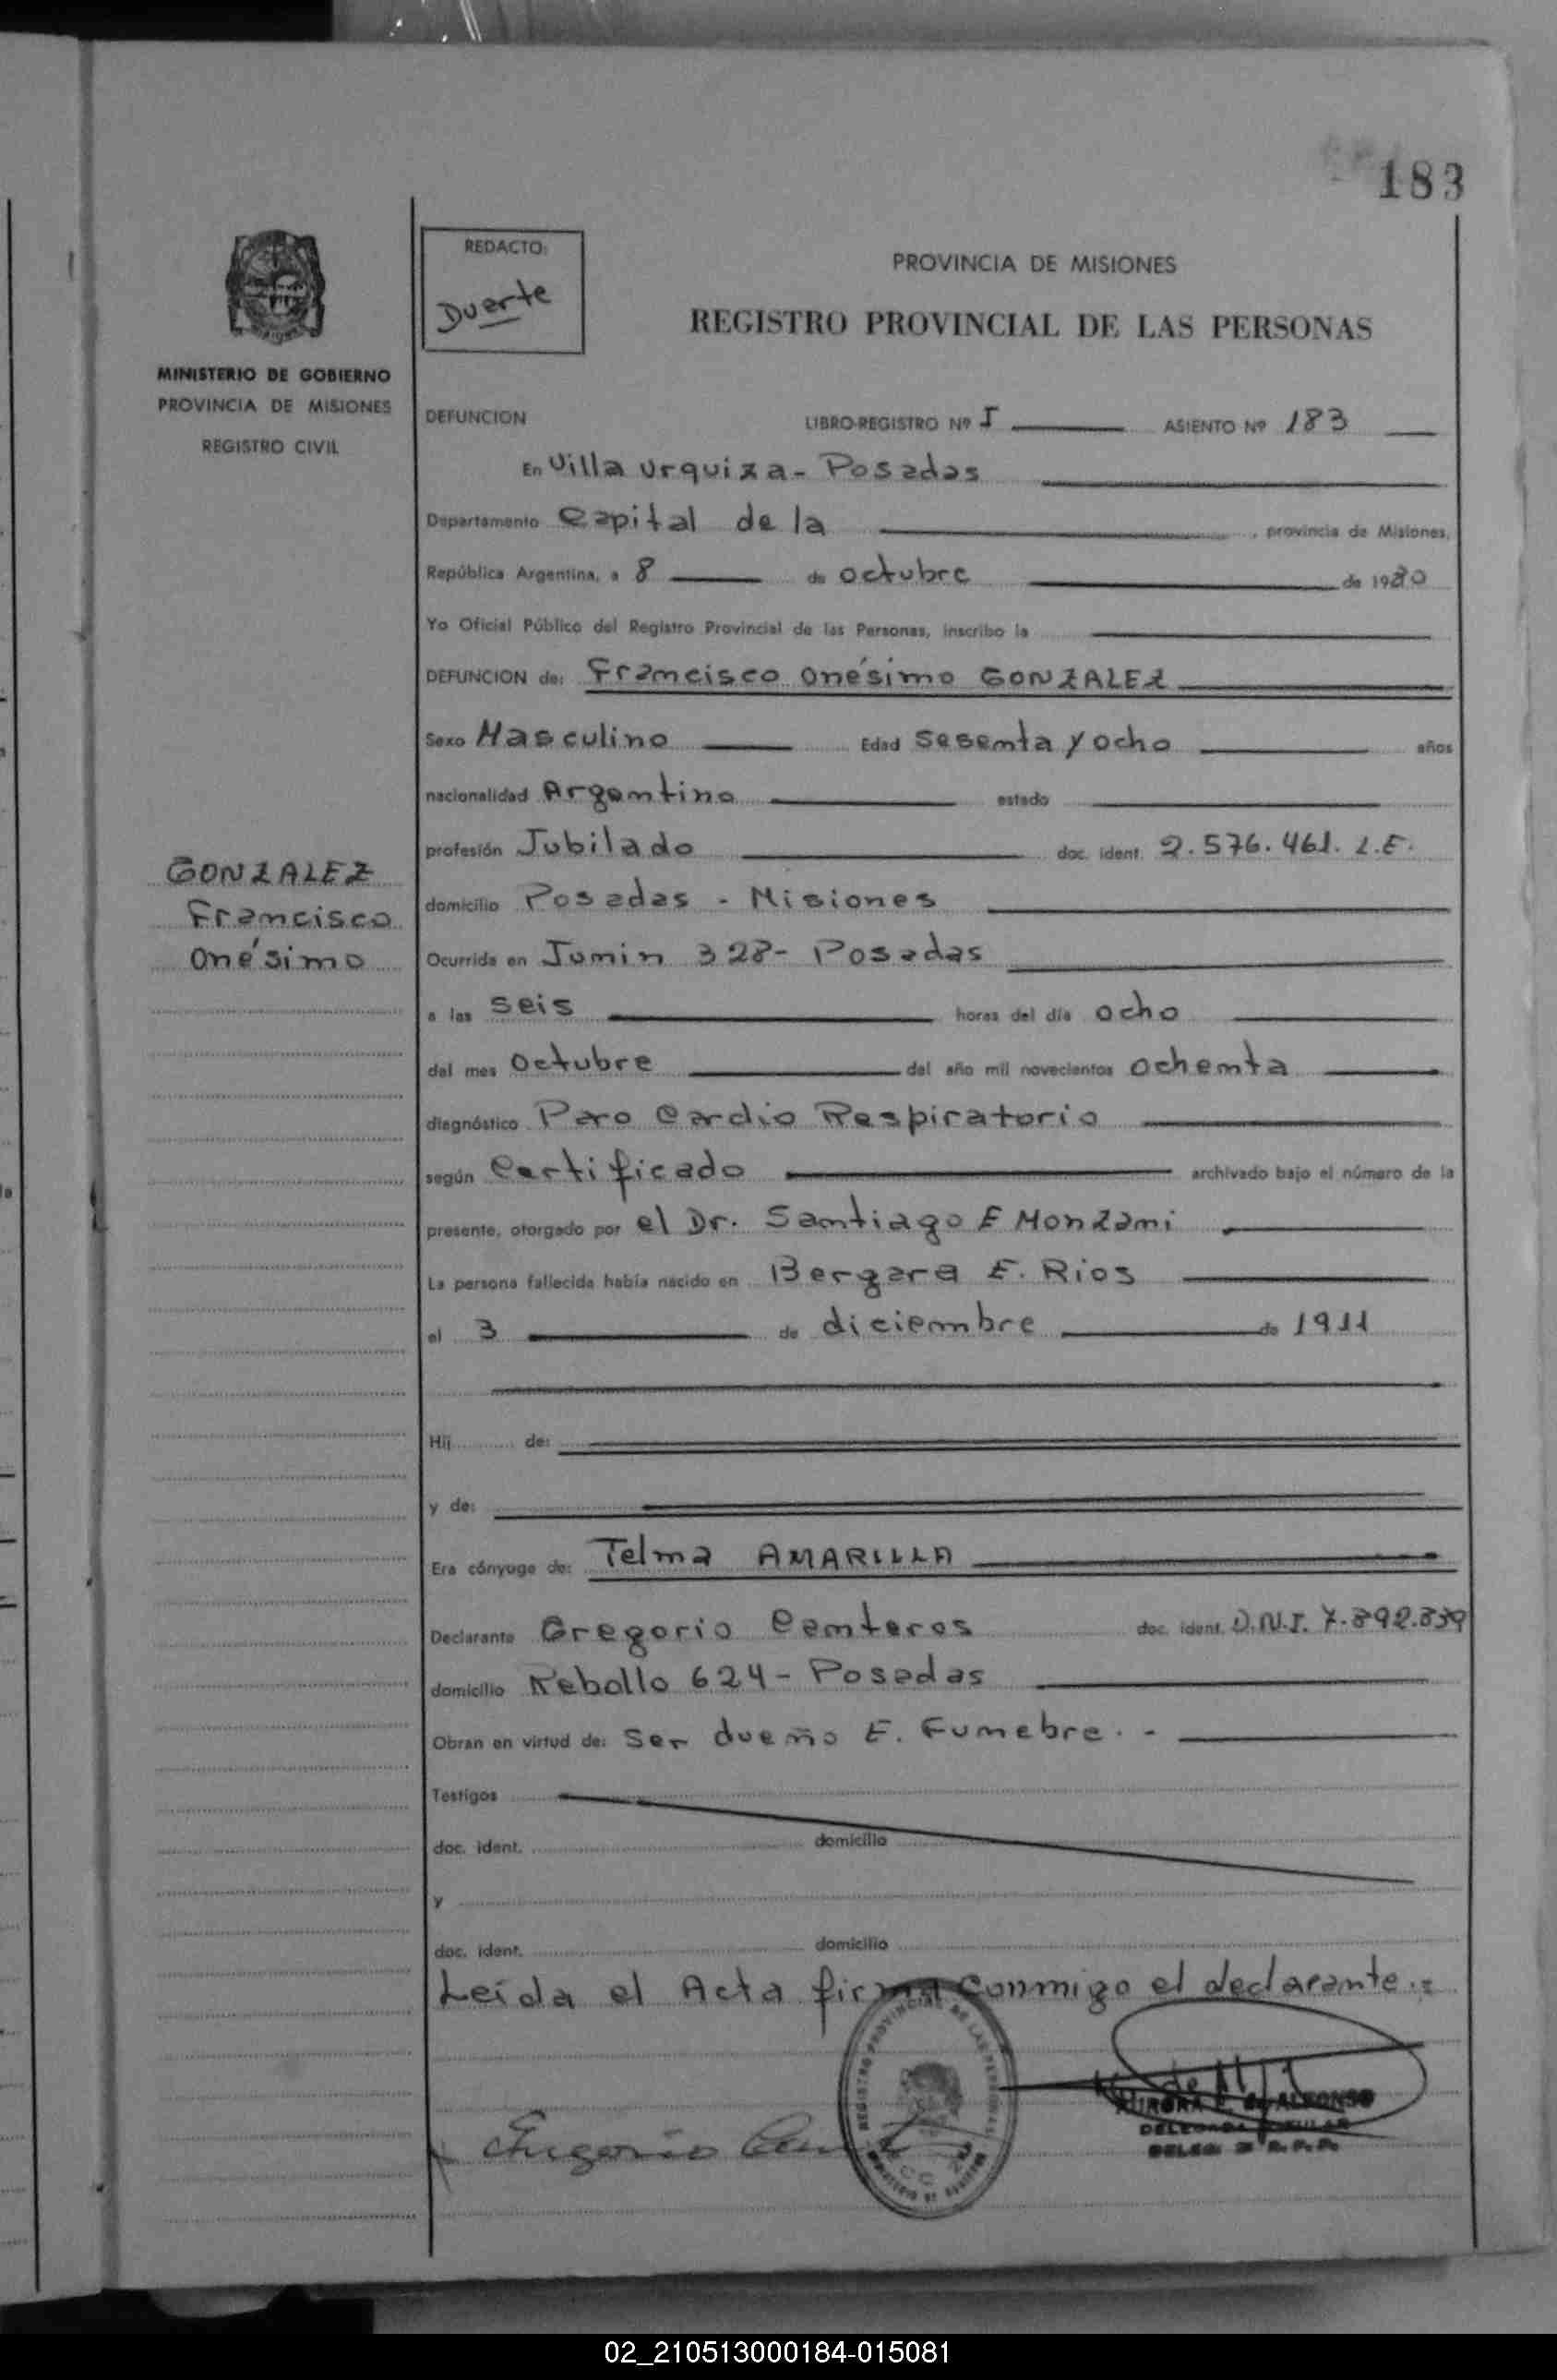 183
MINISTERIO DE GOBIERNO
PROVINCIA DE MISIONES
REGISTRO CIVIL
REDACTO:
Duarte
PROVINCIA DE MISIONES
REGISTRO PROVINCIAL DE LAS PERSONAS
DEFUNCION LIBRO-REGISTRO Nº I ASIENTO Nº 183
En Villa Urquiza - Posadas
Departamento Capital de la , provincia de Misiones,
República Argentina, a 8 de octubre de 1980
Yo Oficial Público del Registro Provincial de las Personas, inscribo la
DEFUNCION de: Francisco Onésimo GONZALEZ
Sexo Masculino Edad Sesenta y ocho años
nacionalidad Argentina estado
profesión Jubilado doc. ident. 2.576.461. L.E.
GONZALEZ
Francisco
Onésimo
domicilio Posadas - Misiones
Ocurrida en Junin 328 - Posadas
a las seis horas del día ocho
del mes Octubre del año mil novecientos ochenta
diagnóstico Paro Cardio Respiratorio
según Certificado archivado bajo el número de la
presente, otorgado por el Dr. Santiago E Monzani
La persona fallecida había nacido en Bergara E. Rios
el 3 de diciembre de 1911
Hij de:
y de:
Era cónyuge de: Telma AMARILLA
Declarante Gregorio Centeros doc. ident. D.N.I. 7.892.839
domicilio Rebollo 624 - Posadas
Obran en virtud de: Ser dueño E. Funebre. -
Testigos
doc. ident. domicilio
y
doc. ident. domicilio
Leída el Acta firma conmigo el declarante.=
REGISTRO PROVINCIAL DE LAS PERSONAS
02_210513000184-015081